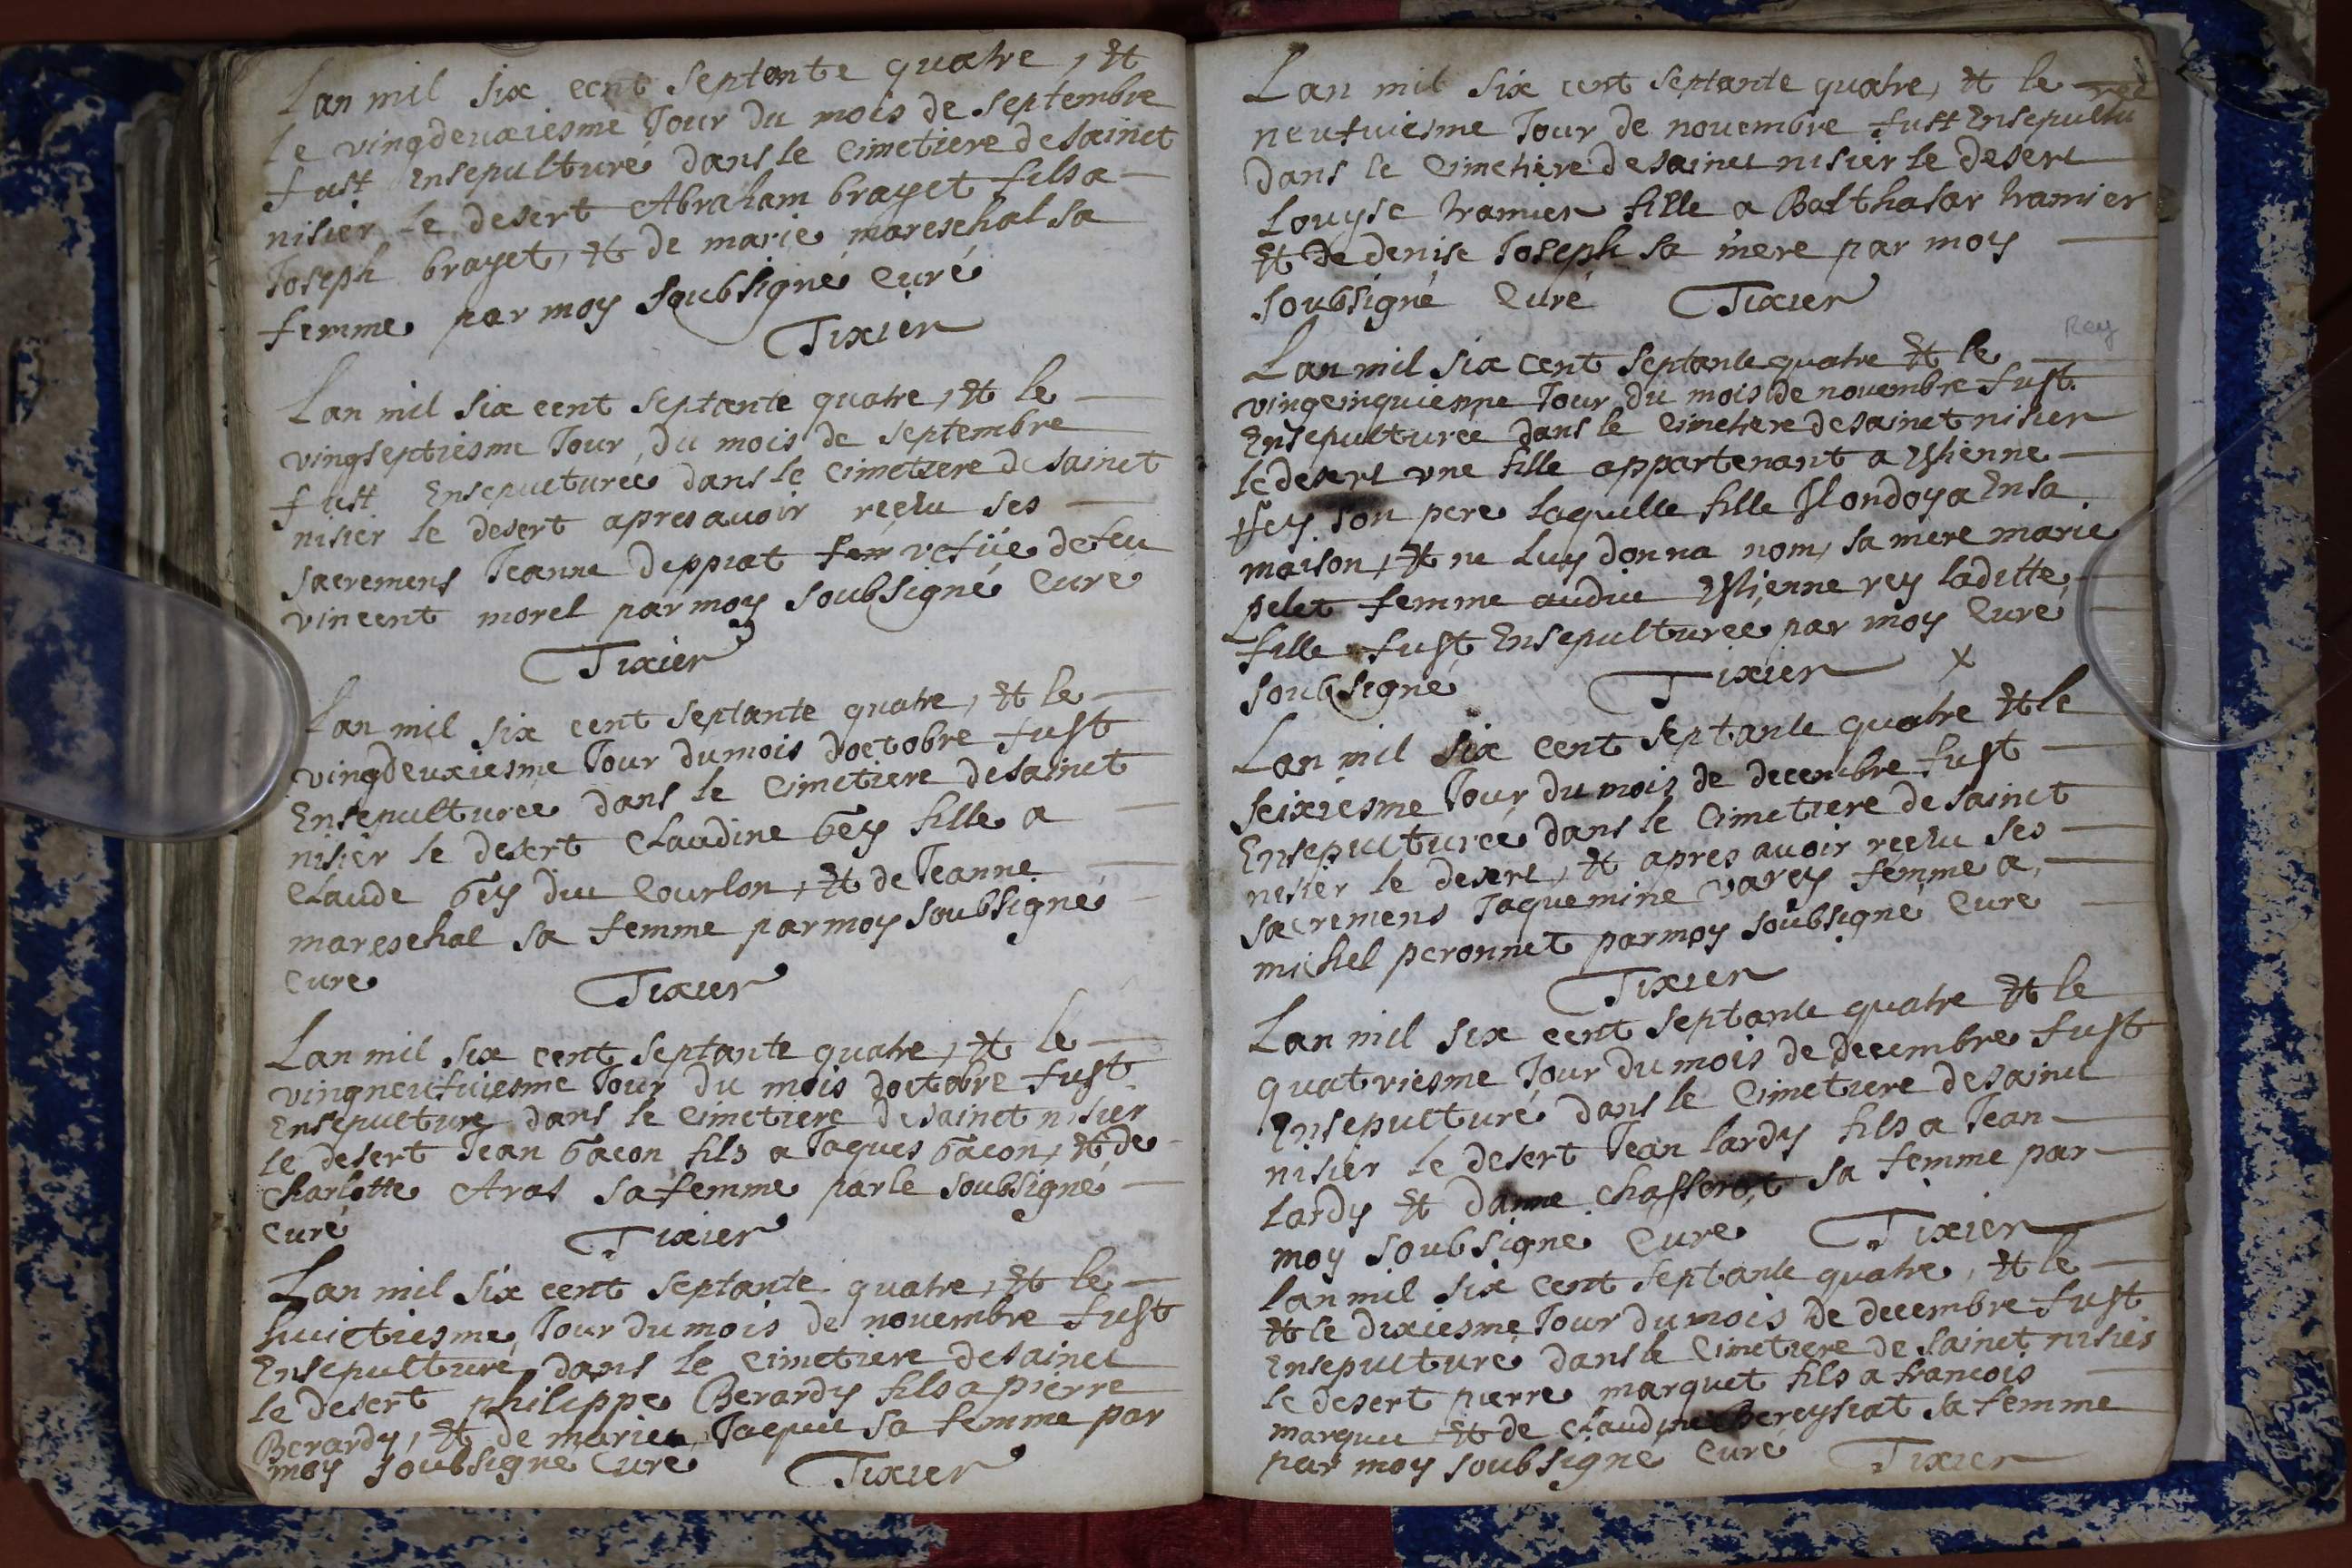 Lan mil six cent septente quatre, et
le vingdeuxiesme Jour du mois de septembre
fust Ensepulturé dans le Cimetiere de sainct
nisier le desert Abraham brayet fils a
Joseph brayet, et de marie mareschal sa
femme par moy soubsigné Curé
Tixier
Lan mil six cent septante quatre, et le
vingseptiesme Jour du mois de septembre
fust Ensepulturee dans le Cimetiere de sainct
nisier le desert apres avoir reçlu ses
sacremens Jeanne deppiat fem vefue de feu
vincent morel par moy soubsigné Cure
Tixier
Lan mil six cent septante quatre, et le
vingdeuxiesme Jour du mois doctobre fust
Ensepulturee dans le Cimetiere de sainct
nisier le desert Claudine Gey fille a
Claude Gey du Courlon, et de Jeanne
mareschal sa femme par moy soubsigné
Cure
Tixier
Lan mil six cent septante quatre, et le
vingneufuiesme Jour du mois doctobre fust
Ensepulture dans le Cimetiere de sainct nisier
le desert Jean Gacon fils a Jaques Gacon, et de
Charlotte Aras sa femme par le soubsigné
Curé
Tixier
Lan mil six cent septante quatre, et le
huictiesme Jour du mois de novembre fust
Ensepulturé dans le Cimetiere de sainct
le desert philippe Berardy fils a pierre
Berardy, et de marie Jaquu sa femme par
moy soubsigné Curé Tixier
Lan mil six cent septante quatre, et le
neufuiesme Jour de novembre fust Ensepultu ree
dans le Cimetiere de sainct nisier le desert
Louyse tramier fille a Balthasar tramier
et de denise Joseph sa mere par moy
soubsigné Curé Tixier
Rey
Lan mil six cent septante quatre et le
vingcinquiesme Jour du mois de novembre fust
Ensepulturée dans le Cimetiere de sainct nisier
le desert une fille appartenant a Estienne
Rey son pere laquelle fille Jl ondoya En sa
maison, et ne luy donna nom, sa mere marie
pelet femme audict Estienne rey laditte
fille fust Ensepulturee par moy Curé
soubsigné Tixier x
Lan mil six cent septante quatre et le
seixiesme Jour du mois de decembre fust
Ensepulturee dans le Cimetiere de sainct
nisier le desert, et apres avoir reçlu ses
sacremens Jaquemine varey femme a
michel peronnet par moy soubsigné Cure
Tixier
Lan mil six cent septante quatre et le
quatriesme Jour du mois de decembre fust
Ensepulturé dans le Cimetiere de sainct
nisier le desert Jean lardy fils a Jean
lardy et danne Chasserot sa femme par
moy soubsigne Cure Tixier
Lan mil six cent septante quatre, et le
et le dixiesme Jour du mois de decembre fust
Ensepulture dans le Cimetiere de sainct nisier
le desert pierre marquet fils a francois
marquu et de Claudine Bereysiat sa femme
par moy soubsigné Curé Tixier